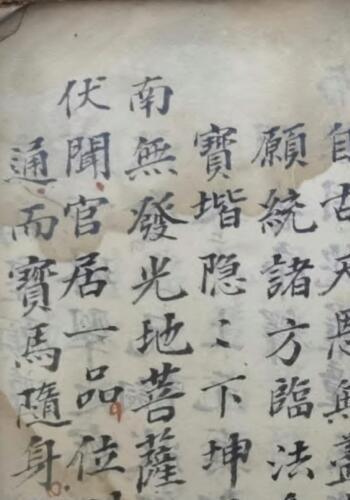 自古天恩與
願統諸方臨法
寶堦隐〻下坤
南無發光地菩薩
伏聞官居一品位
通而寶馬隨身